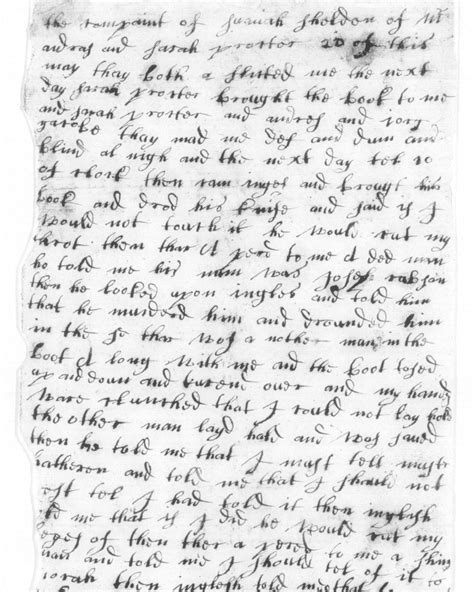 the complaint of Susanah sholden of Mr
andros and sarah procter 20 of this
may thay both a flicted me the next
day sarah procter brought the book to me
and sarah procter and andres and iorg
iacobs thay mad me def and dum and
blind al nigh and the next day tel 10
of clock then cam ingles and brougt his
book and drod his knife and said if I
would not touth it he would cut my
throt then thar A perd to me A ded man
he told me his nam was Joseph rabson
then he looked upon ingles and told him
that he murderd him and drounded him
in the se thar was a nother man in the
boot A long with me and the boot tosed
up and down and turend over and my hands
ware cluched that I could not lay hold
the other man layd hold and was saved
then he told me that I must tell mastr
hatheren and told me that I should not
rest tel I had told it then inglish
told me that if I did he would cut my
leges of then ther a pered to me a shin
man and told me I should tel of it to
morah then inglesh told me that